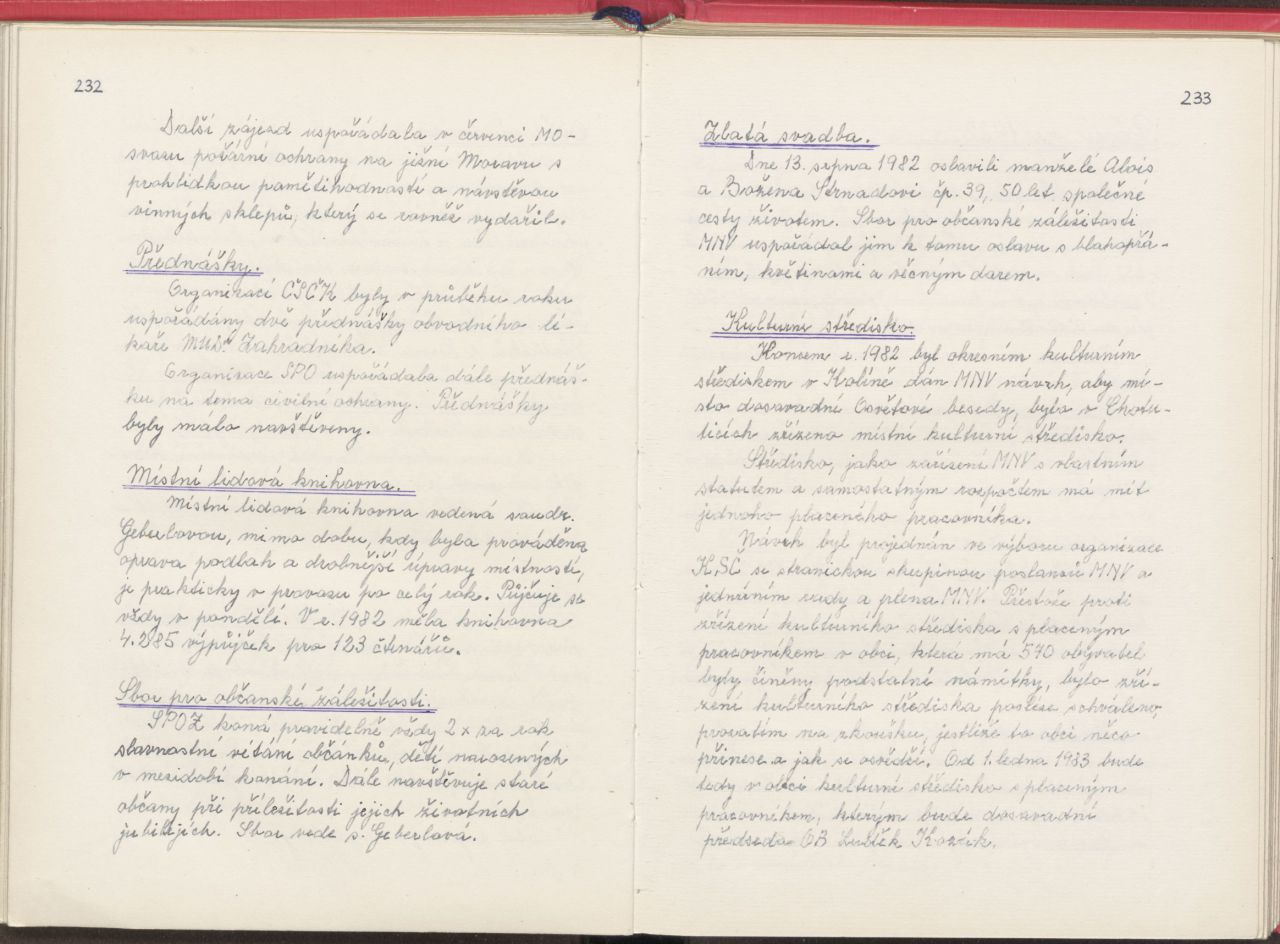 232
Další zájezd uspořádala v červenci MO-
svazu požární ochrany na jižní Moravu s
prohlídkou pamětihodností a návstěvou
vinných sklepů, který se rovněž vydařil.
Přednášky.
Organizací ČSČK byly v průběhu roku
uspořádány dvě přednášky obvodního lé-
kaře MUDr. Zahradníka.
Organizace SPO uspořádala dále přednáš-
ku na tema civilní ochrany. Přednášky
byly málo navštěveny.
Místní lidová knihovna.
Místní lidová knihovna vedená soudr.
mimo dobu, kdy byla prováděna
oprava podlah a drobnější úpravy místností,
je prakticky v provozu po celý rok. Půjčuje se
vždy v pondělí. V r. 1982 měla knihovna
4.285 výpůjček pro 123 čtenářů.
Sbor pro občanské záležitosti.
SPOZ koná pravidelně vždy 2 x za rok
slavnostní vítání občánků, dětí narozených
v mezidobí konání. Dále navštěvuje staré
občany při příležitosti jejich životních
jubilejích. Sbor vede s. Geberlová.
233
Zlatá svadba.
Dne 13. srpna 1982 oslavili manželé Alois
a Božena Strnadovi čp. 39, 50 let společné
cesty životem. Sbor pro občanské záležitosti
MNV uspořádal jim k tomu oslavu s blahopřá-
ním, květinami a věcným darem.
Kulturní středisko.
Koncem r. 1982 byl okresním kulturním
střediskem v Kolíně dán MNV návrh, aby mí-
sto dosavadní Osvětové besedy, bylo v Chotu-
ticích zřízeno místní kulturní středisko.
Středisko, jako zařízení MNV s vlastním
statutem a samostatným rozpočtem má mít
jednoho placeného pracovníka.
Návrh byl projednán ve výboru organizace
KSČ se stranickou skupinou poslanců MNV a
jednáním rady a plena MNV. Přestože proti
zřízení kulturního střediska s placeným
pracovníkem v obci, která má 570 obyvatel
byly činěny podstatné námitky, bylo zří-
zení kulturního střediska posléze schváleno,
prozatím na zkoušku, jestliže to obci něco
přinese a jak se osvědčí. Od 1. ledna 1983 bude
tedy v obci kulturní středisko s placeným
pracovníkem, kterým bude dosavadní
předseda OB Luděk Kozák.